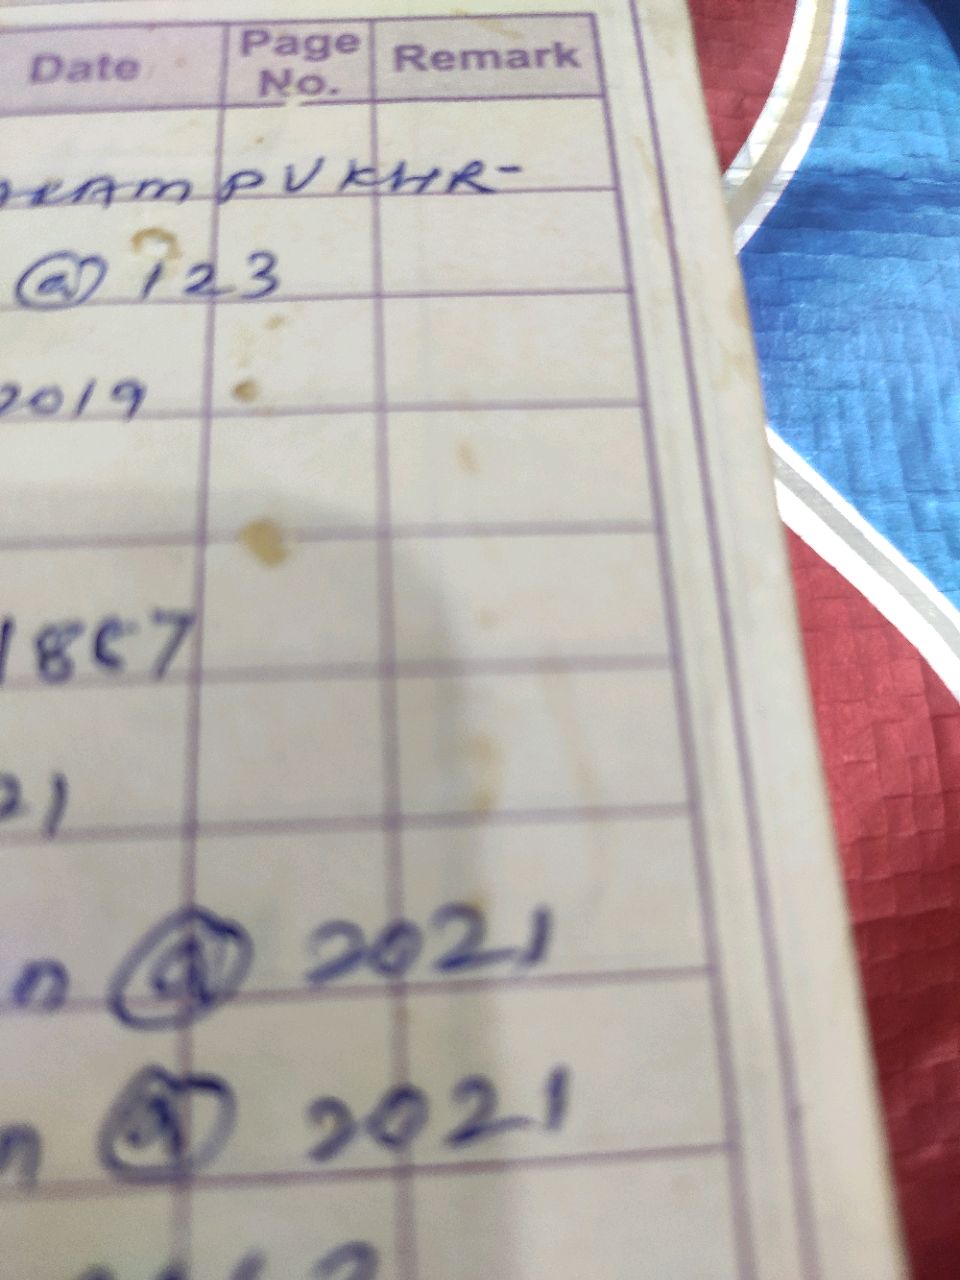 Date Page No. Remark
PUKHR-
@ 123
2019
1867
21
n @ 2021
n @ 2021